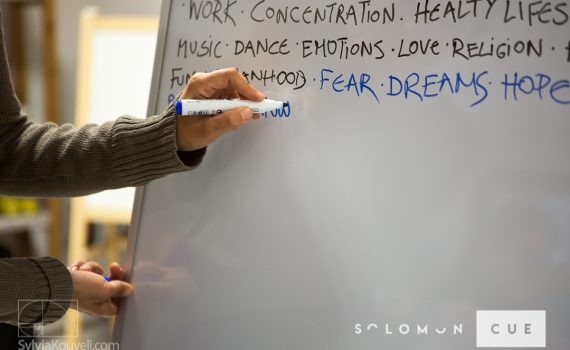 · WORK · CONCENTRATION · HEALTY LIFES
MUSIC · DANCE · EMOTIONS · LOVE · RELIGION ·
FUN · FEAR · DREAMS · HOPE
SOLOMON CUE
SylviaKouveli.com